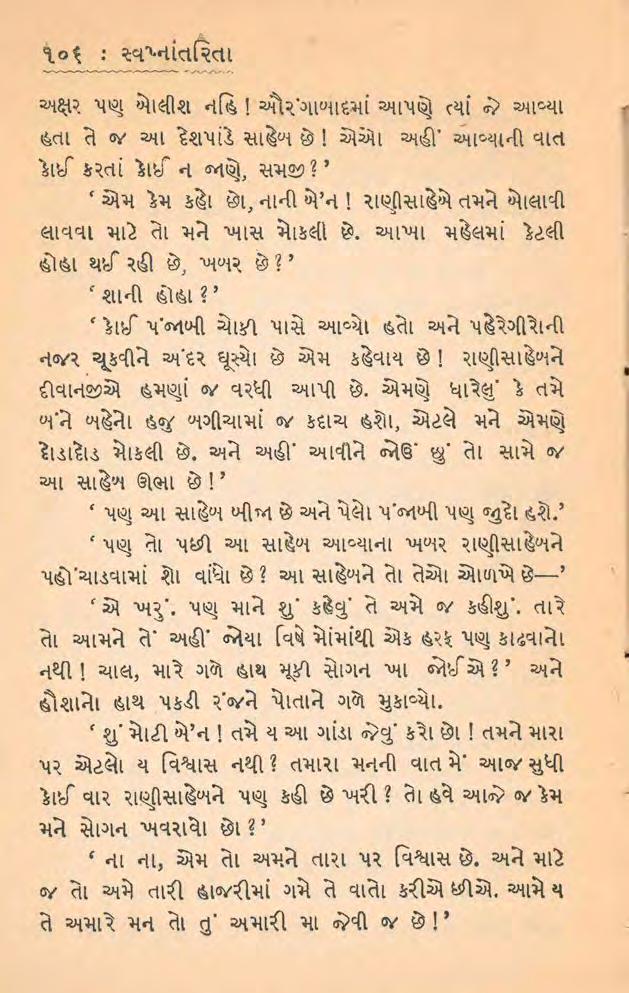 ૧૦૬ : સ્વપ્નાંતરિતા
અક્ષર પણ બોલીશ નહિ ! ઔરંગાબાદમાં આપણે ત્યાં જે આવ્યા
હતા તે જ આ દેશપાંડે સાહેબ છે ! એઓ અહીં આવ્યાની વાત
કોઈ કરતાં કોઈ ન જાણે, સમજી ?’
‘ એમ કેમ કહો છો, નાની બે’ન ! રાણીસાહેબે તમને બોલાવી
લાવવા માટે તો મને ખાસ મોકલી છે. આખા મહેલમાં કેટલી
હોહા થઈ રહી છે, ખબર છે ?’
‘ શાની હોહા ?’
‘ કોઈ પંજાબી ચોકી પાસે આવ્યો હતો અને પહેરેગીરોની
નજર ચૂકવીને અંદર ઘૂસ્યો છે એમ કહેવાય છે ! રાણીસાહેબને
દીવાનજીએ હમણાં જ વરધી આપી છે. એમણે ધારેલું કે તમે
બંને બહેનો હજુ બગીચામાં જ કદાચ હશો, એટલે મને એમણે
દોડાદોડ મોકલી છે. અને અહીં આવીને જોઉં છું તો સામે જ
આ સાહેબ ઊભા છે !’
‘ પણ આ સાહેબ બીજા છે અને પેલો પંજાબી પણ જુદો હશે.’
‘ પણ તો પછી આ સાહેબ આવ્યાના ખબર રાણીસાહેબને
પહોંચાડવામાં શો વાંધો છે ? આ સાહેબને તો તેઓ ઓળખે છે—’
‘ એ ખરું. પણ માને શું કહેવું તે અમે જ કહીશું. તારે
તો આમને તેં અહીં જોયા વિષે મોંમાંથી એક હરફ પણ કાઢવાનો
નથી ! ચાલ, મારે ગળે હાથ મૂકી સોગન ખા જોઈએ ?’ અને
હૌશાનો હાથ પકડી રંજને પોતાને ગળે મુકાવ્યો.
‘ શું મોટી બે’ન ! તમે ય આ ગાંડા જેવું કરો છો ! તમને મારા
પર એટલો ય વિશ્વાસ નથી ? તમારા મનની વાત મેં આજ સુધી
કોઈ વાર રાણીસાહેબને પણ કહી છે ખરી ? તો હવે આજે જ કેમ
મને સોગન ખવરાવો છો ?’
‘ ના ના, એમ તો અમને તારા પર વિશ્વાસ છે. અને માટે
જ તો અમે તારી હાજરીમાં ગમે તે વાતો કરીએ છીએ. આમે ય
તે અમારે મન તો તું અમારી મા જેવી જ છે !’